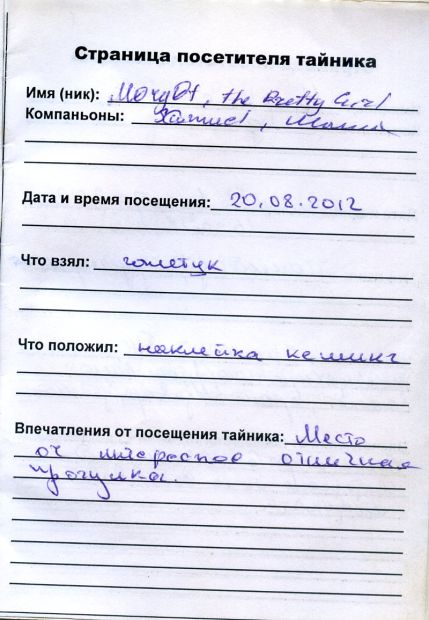 Страница посетителя тайника
Имя (ник): the Pretty Girl
Компаньоны:
Дата и время посещения: 20.08.2012
Что взял: галстук
Что положил: наклейка кешинг
Впечатления от посещения тайника: Место
оч интересное отличная
прогулка.